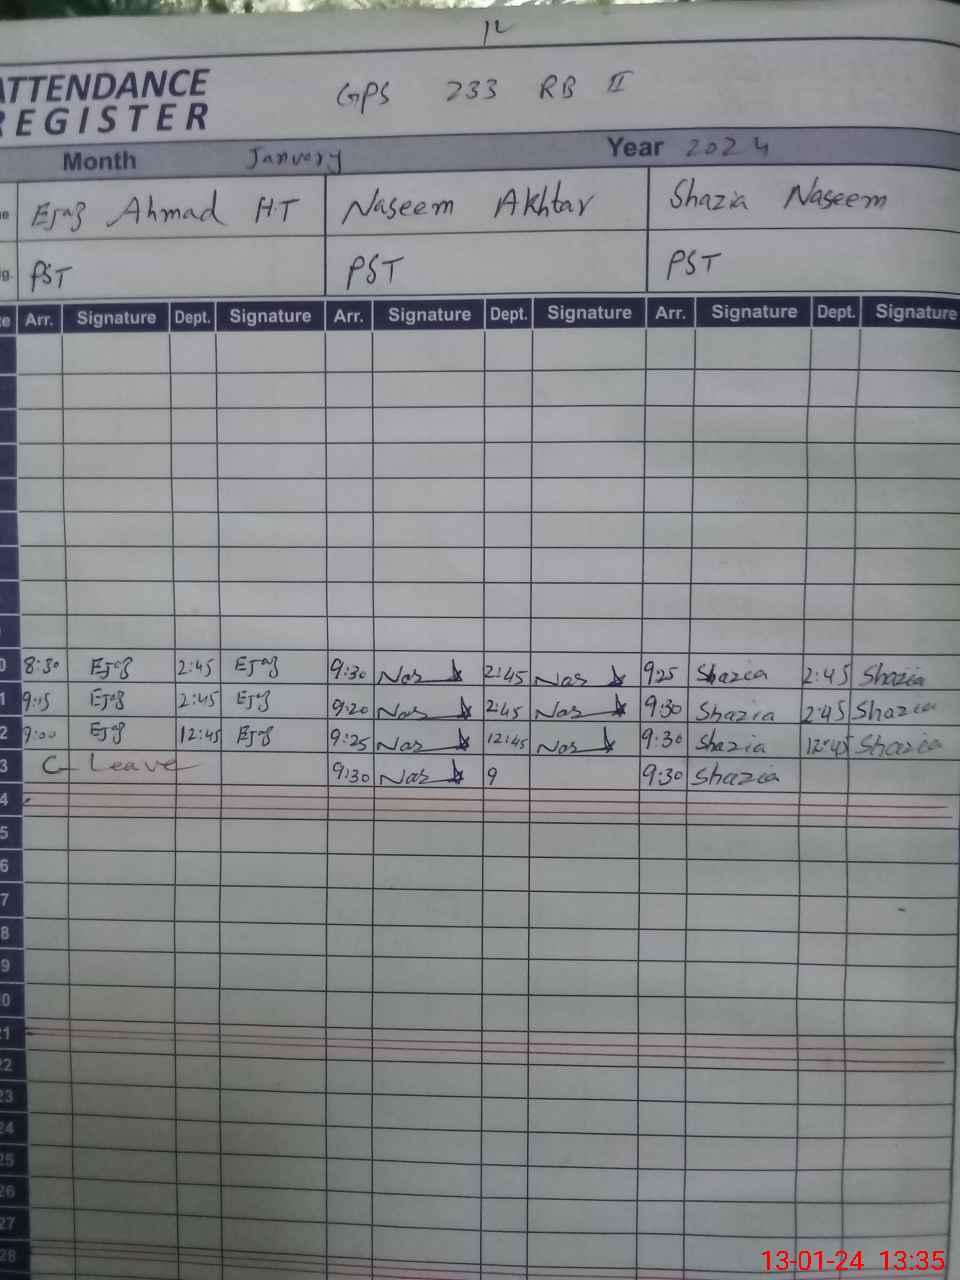 12
ATTENDANCE
REGISTER
GPS 233 RB II
Month January Year 2024
Ejaz Ahmad H.T Naseem Akhtar Shazia Naseem
PST PST PST
Arr. Signature Dept. Signature Arr. Signature Dept. Signature Arr. Signature Dept. Signature
0 8:30 Ejaz 2:45 Ejaz 9:30 Nas 2:45 Nas 9:25 Shazia 2:45 Shazia
1 9:15 Ejaz 2:45 Ejaz 9:20 Nas 2:45 Nas 9:30 Shazia 2:45 Shazia
2 9:00 Ejaz 12:45 Ejaz 9:25 Nas 12:45 Nas 9:30 Shazia 12:45 Shazia
3 C- Leave 9:30 Nas 9 9:30 Shazia
4
5
6
7
8
9
0
21
22
23
24
25
26
27
28
13-01-24 13:35